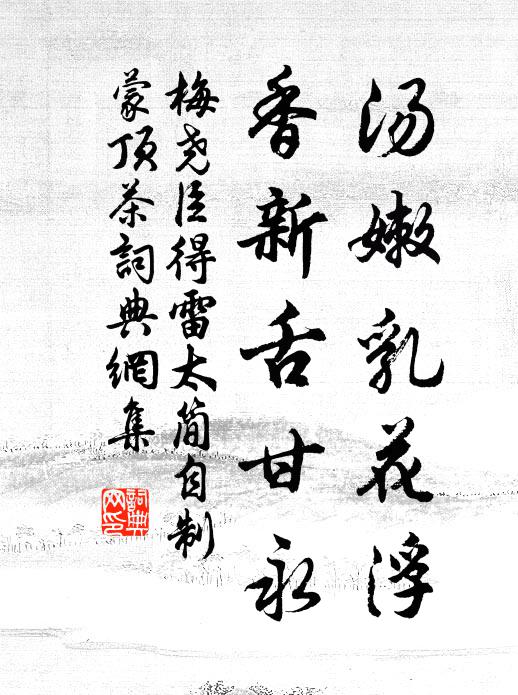 汤嫩乳花浮
香新舌甘永
梅尧臣得雷太简自制
蒙顶茶詞典網集
詞典
网印